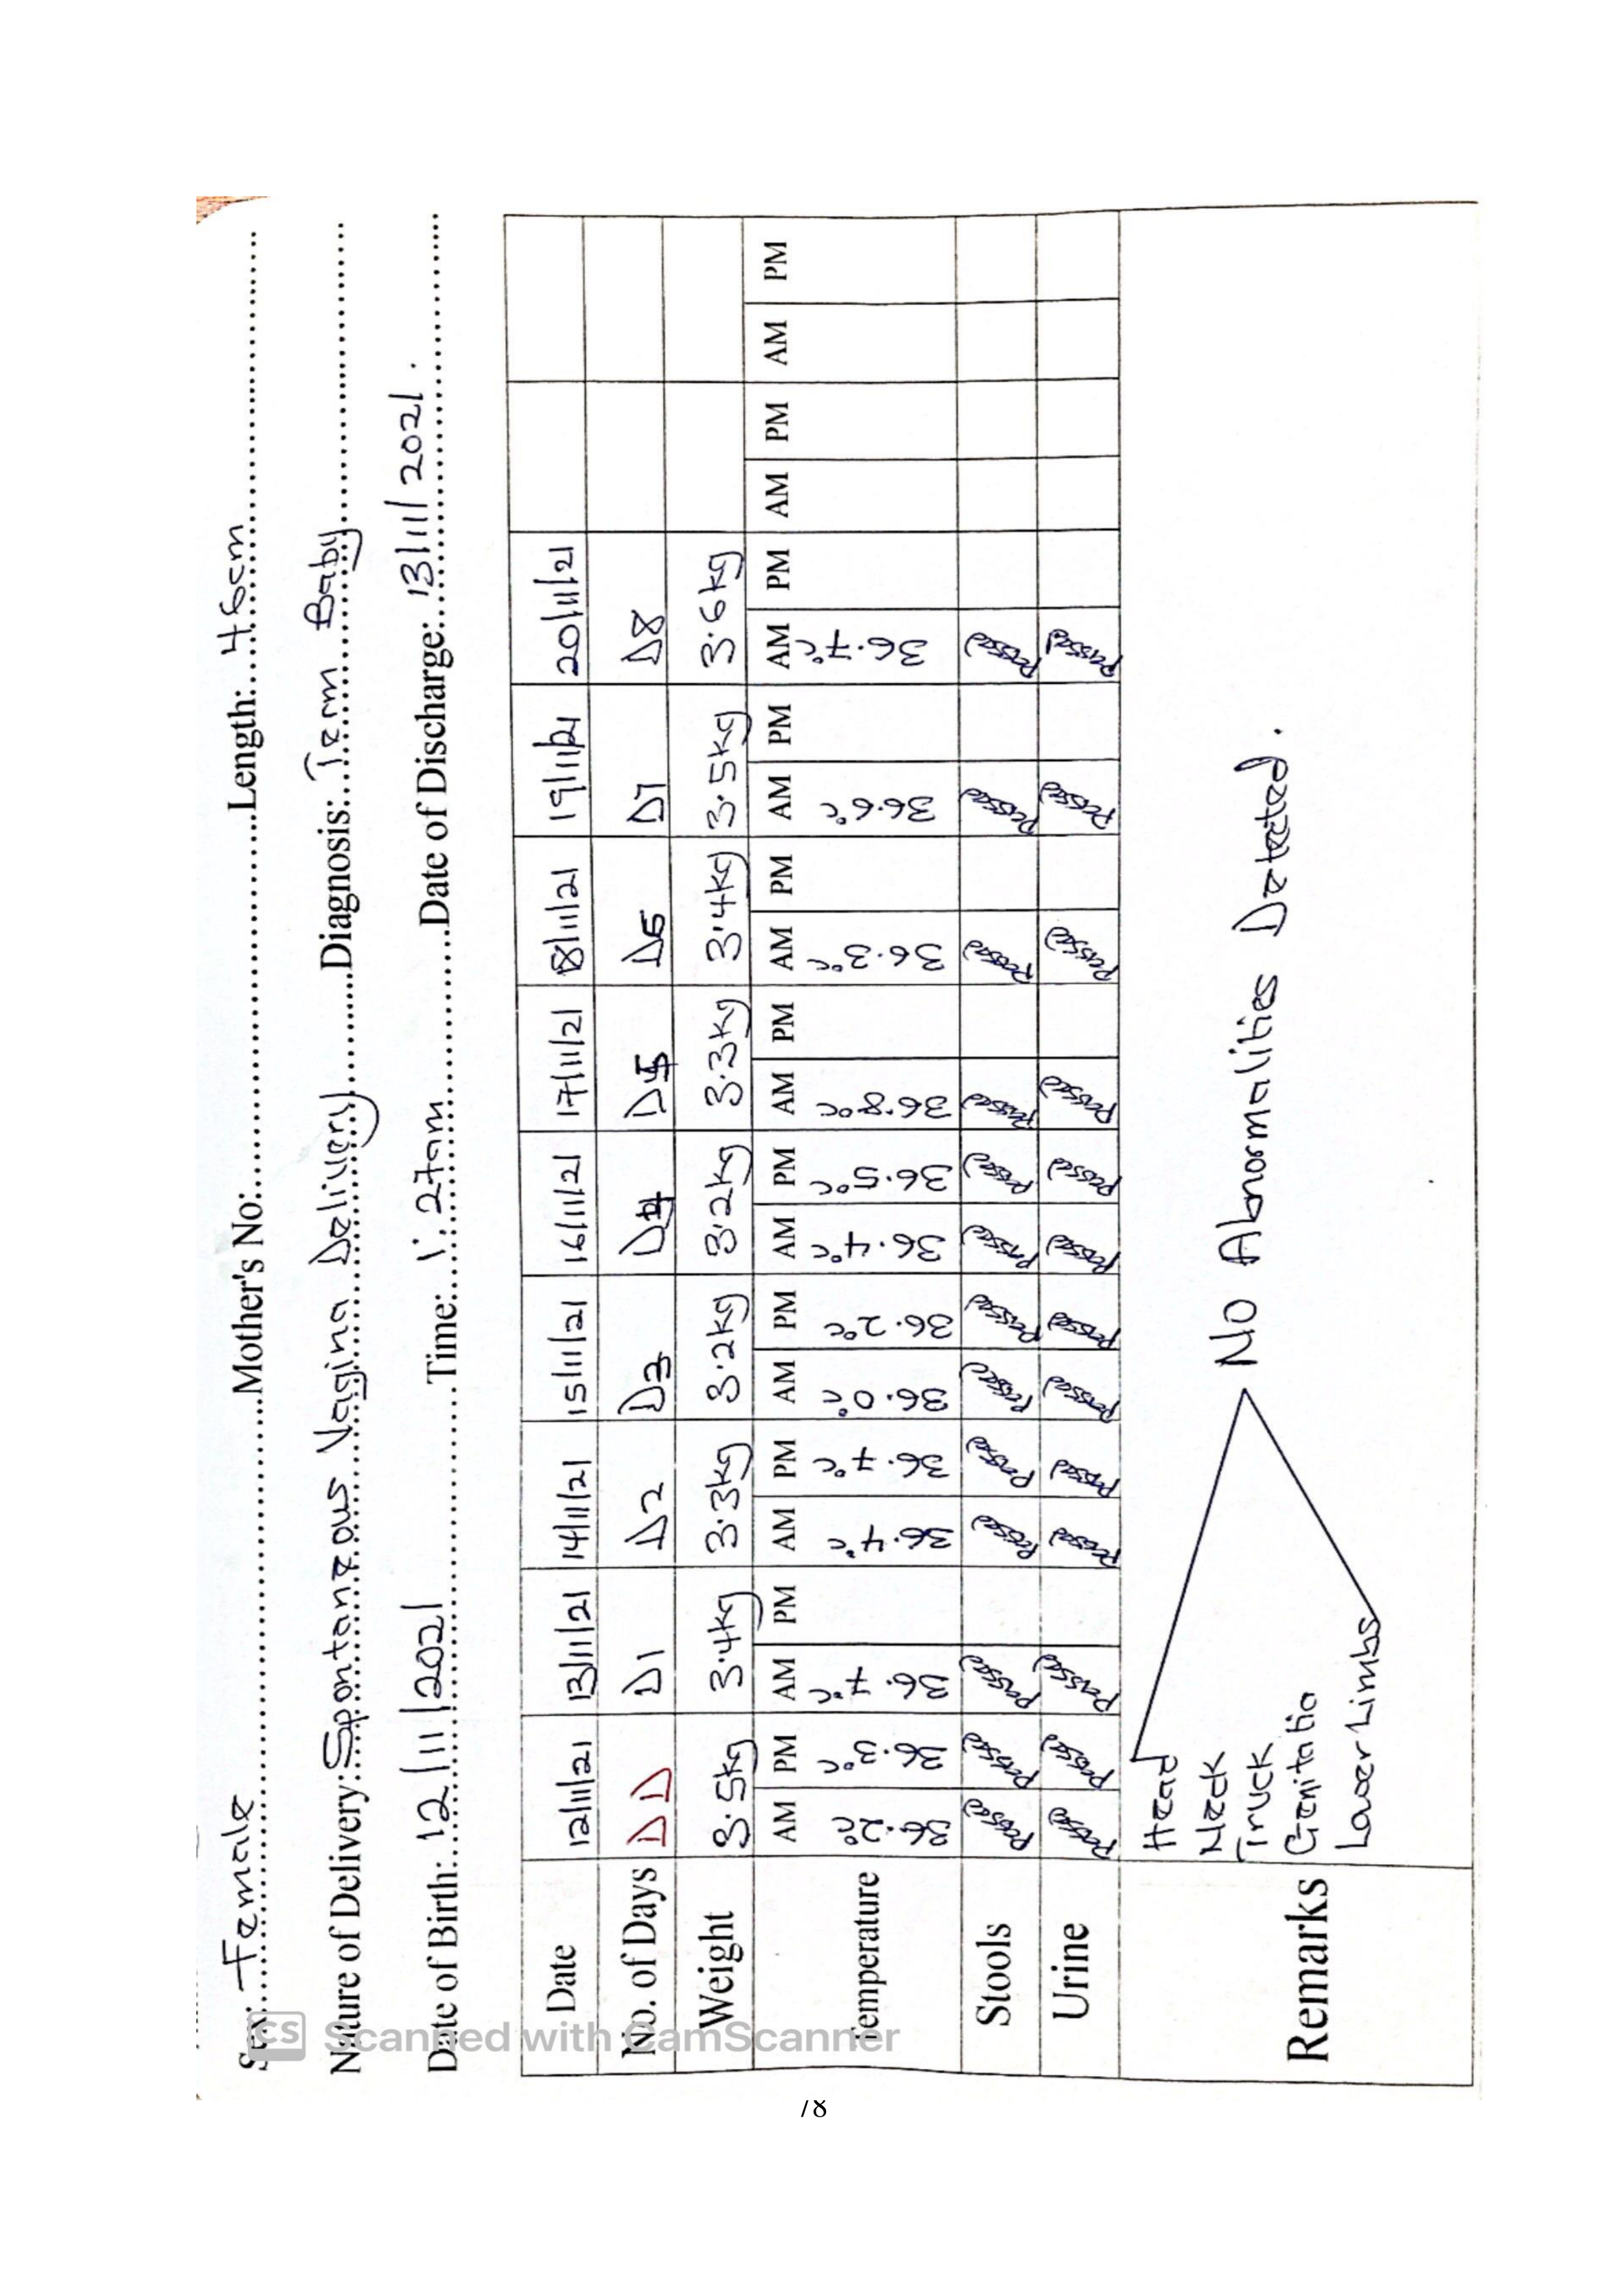 Sex: Female Mother's No: Length: 46cm
Nature of Delivery: Spontaneous Vagina Delivery Diagnosis: Term Baby
Date of Birth: 12/11/2021 Time: 1:27am Date of Discharge: 13/11/2021.
Date 12/11/21 13/11/21 14/11/21 15/11/21 16/11/21 17/11/21 18/11/21 19/11/21 20/11/21
No. of Days DD D1 D2 D3 D4 D5 D6 D7 D8
Weight 3.5kg 3.4kg 3.3kg 3.2kg 3.2kg 3.3kg 3.4kg 3.5kg 3.6kg
AM PM AM PM AM PM AM PM AM PM AM PM AM PM AM PM AM PM AM PM AM PM
Temperature 36.2°c 36.3°c 36.7°c 36.4°c 36.7°c 36.0°c 36.2°c 36.4°c 36.5°c 36.8°c 36.3°c 36.6°c 36.7°c
Stools Passed Passed Passed Passed Passed Passed Passed Passed Passed Passed Passed Passed Passed
Urine Passed Passed Passed Passed Passed Passed Passed Passed Passed Passed Passed Passed Passed
Remarks
Head
Neck
Truck
Genitalia
Lower Limbs
No Abnormalities Detected.
CS Scanned with CamScanner
78